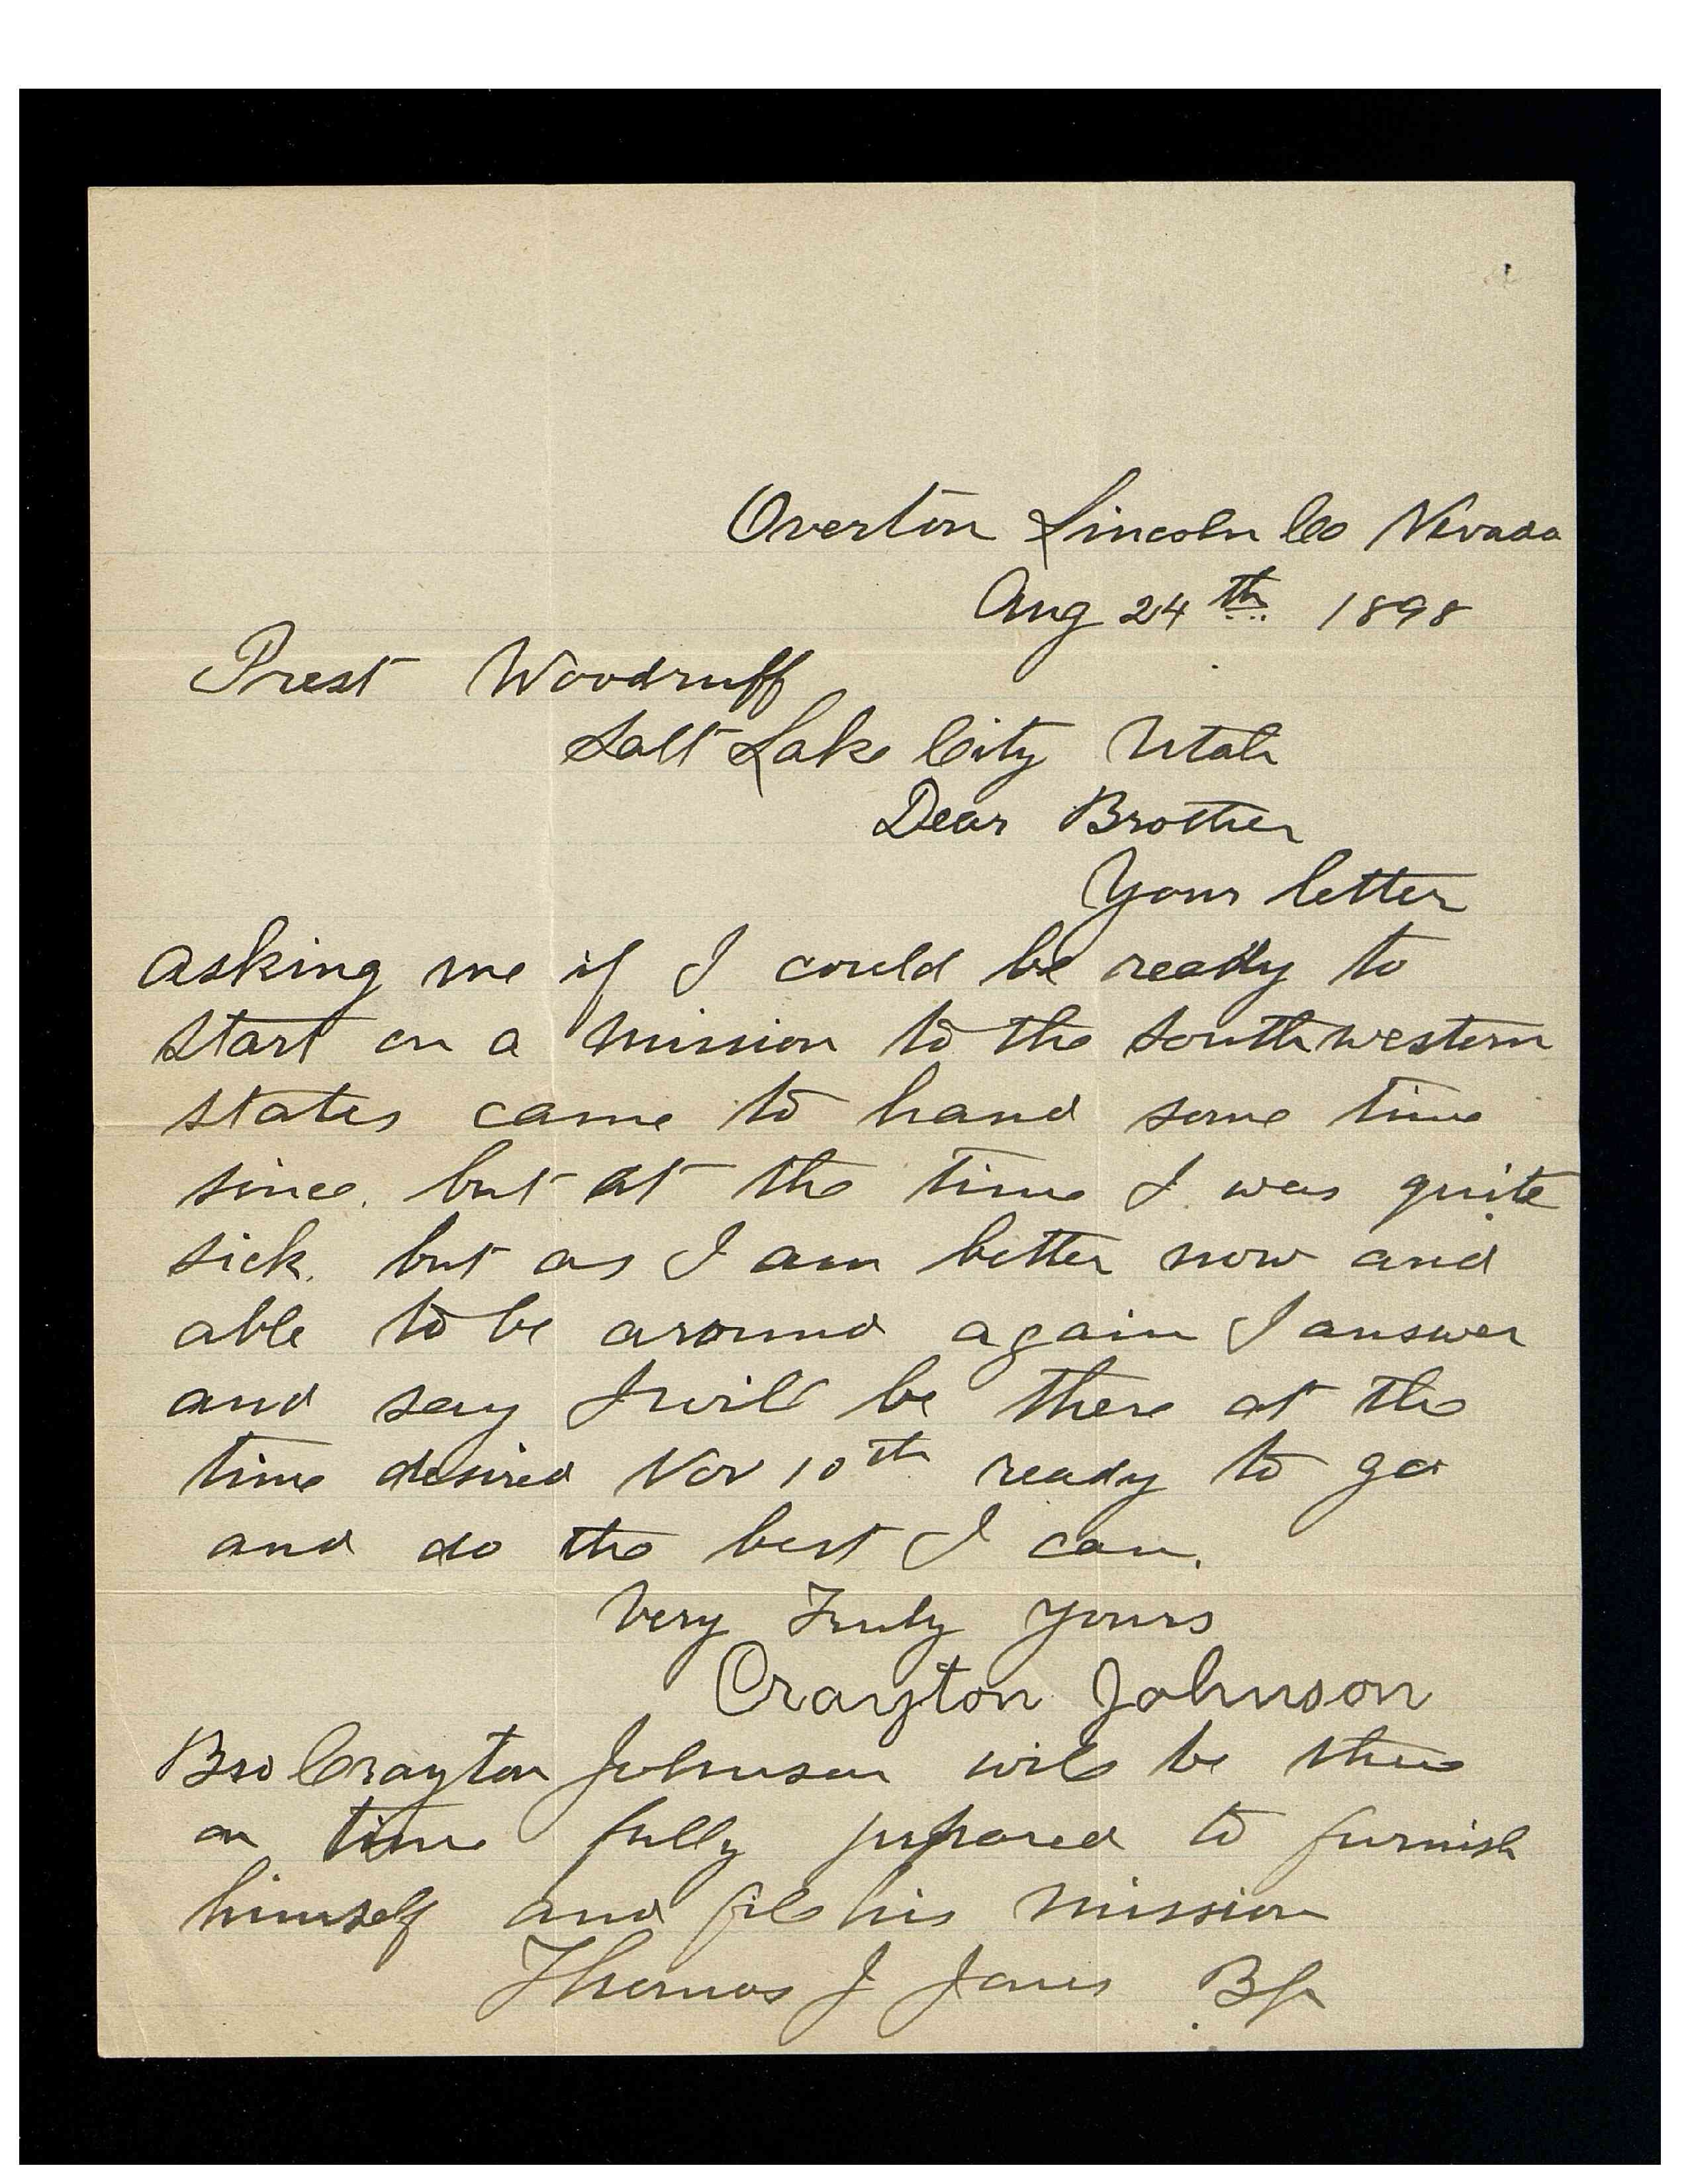 Overton Lincoln Co Nevada
Aug 24th 1898
Prest Woodruff
Salt Lake City Utah
Dear Brother
Your letter
asking me if I could be ready to
start on a mission to the southwestern
states came to hand some time
since. but at the time I was quite
sick. but as I am better now and
able to be around again I answer
and say I will be there at the
time desired Nov 10th ready to go
and do the best I can.
Very Truly Yours
Crayton Johnson
Bro Crayton Johnson will be there
on time fully prepared to furnish
himself and fill his mission
Thomas J Jones Bp